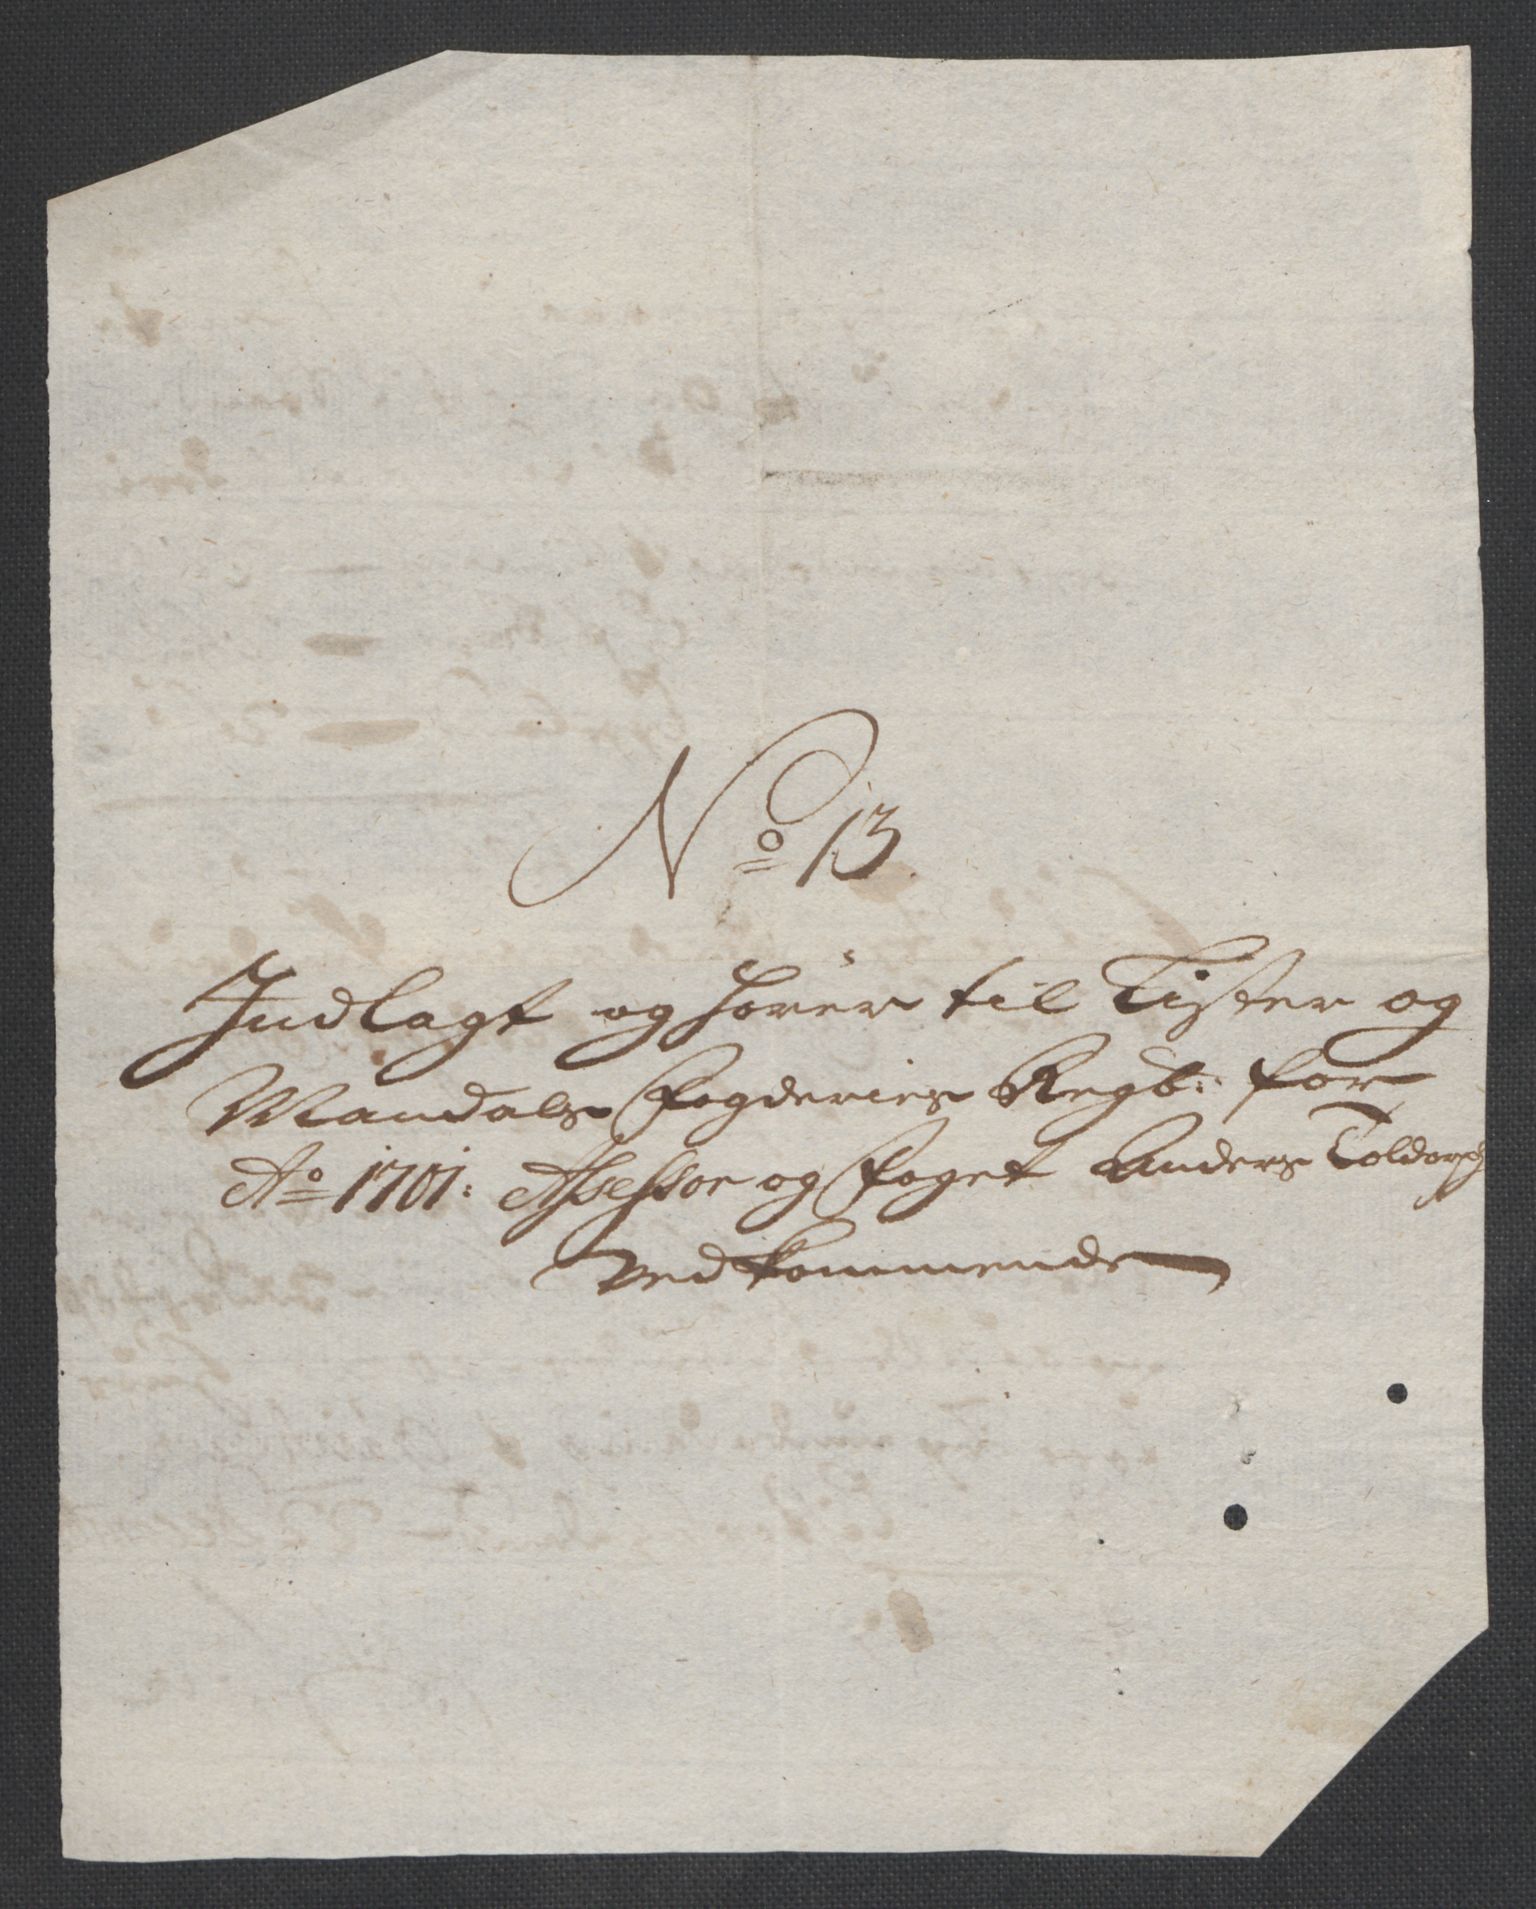 No 13
Indlagt og hører til Lister og
Mandals fogderies Regb: for
Ao 1701: Assessor og foget Anders Toldorph
Vedkommende